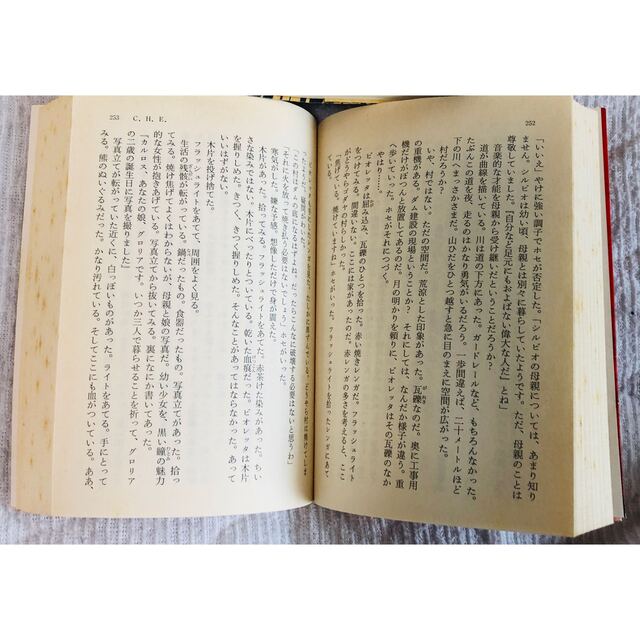 252
「いいえ」やけに強い調子でホセが否定した。「シルビオの母親については、あまり知り
ません。シルビオは幼い頃、母親とは別々に暮らしていたようです。ただ、母親のことは
尊敬していました。「自分など足元にもおよばない偉大な人だ」とね」
音楽的な才能を母親から受け継いだということだろうか?
道が曲線を描いている。川は道の下方にあった。ガードレールなど、もちろんなかった。
たぶんこの道を夜、走るのはかなり勇気がいるだろう。一歩間違えば、二十メートルほど
下の川へまっさかさまだ。山ひだをひとつ越すと急に目のまえに空間が広がった。
村だろうか?
いや、村ではない。ただの空間だ。荒涼とした印象があった。瓦礫なのだ。奥に工事用
の重機がある。ダム建設の現場ということか? それにしては、なんだか様子が違う。重
機だけがぽつんと放置してあるのだ。月の明かりを頼りに、ビオレッタはその瓦礫のなか
へ歩いていった。ホセがそれにつづく。
やは
ビオレッタは屈み込み、瓦礫のひとつを拾った。赤い焼きレンガだ。フラッシュライト
をつけてみる。間違いない。ここには家があったのだ。赤レンガの多さを考えると、ここ
がどうやらゴダヤの村らしかった。
「焼けていますね」ホセがいった。フラッシュライトを拾ったレンガにあて
ている。
253
C.H.E.
「それに火を放って焼き払う必要はないでしょう」ホセがいった。
寒気がした。嫌な予感。想像しただけで身が震えた。
木片があった。拾ってみる。フラッシュライトをあてた。赤茶けた染みがあった。ちい
さな染みではない。木片にべったりとついている。乾いた血痕だった。ビオレッタは木片
を握りしめた。きつく、きつく握りしめた。そんなことがあってはならなかった。あって
はならない。
木片を投げ捨てた。
フラッシュライトをあてて、周囲をよく見る。
生活の残骸が転がっている。鍋だったもの。食器だったもの。写真立てがあった。拾っ
てみる。焼け焦げてよくはわからないが、母親と娘の写真だ。幼い少女を、黒い瞳の魅力
的な女性が抱きあげている。写真立てから抜いてみる。裏になにか書いてあった。
「カルロス、あなたの娘、グロリアです。いつか三人で暮らせることを祈って、グロリア
の二歳の誕生日に写真を撮りました」
写真立てが転がっていた近くに、白っぽいものがあった。ライトをあてる。手にとって
みる。熊のぬいぐるみだった。かなり汚れている。そしてここにも血がついている。ああ、